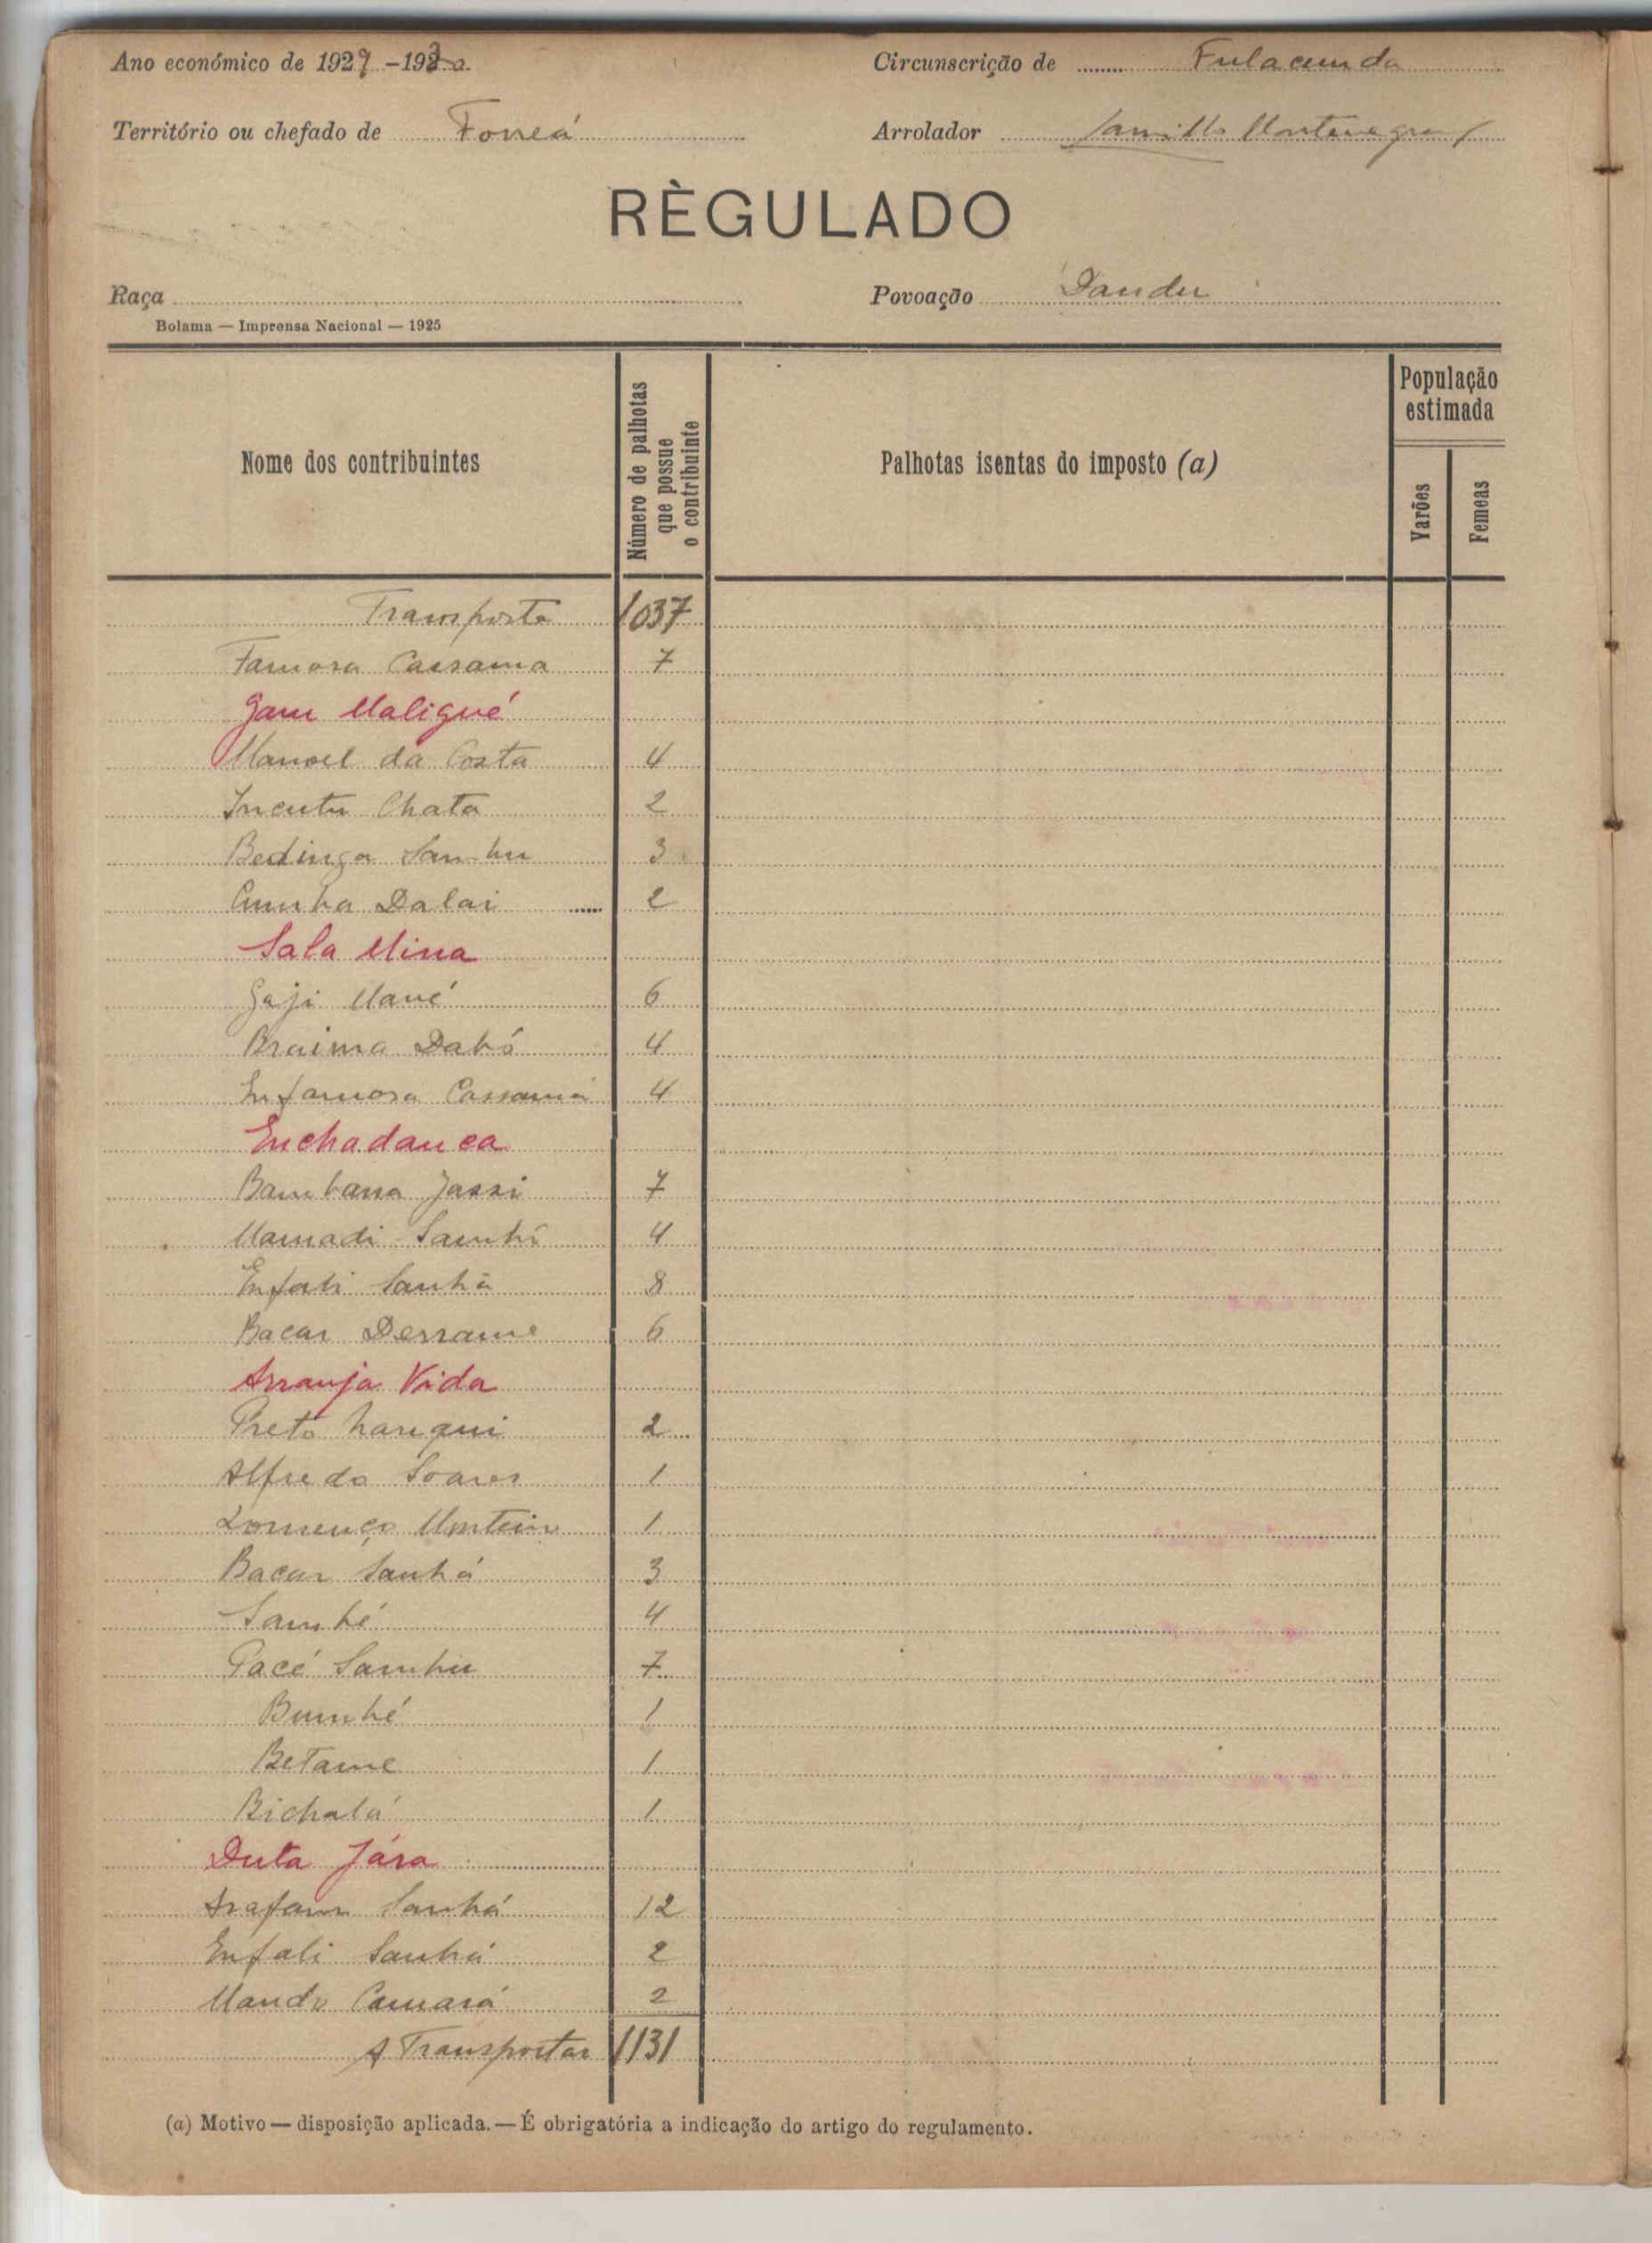 Ano económico de 1929-1930
Circunscrição de Fulacunda
Território ou chefado de Forreá
Arrolador Camillo Montenegro
RÈGULADO
Raça
Povoação Dandu
Bolama — Imprensa Nacional — 1925
Nome dos contribuintes
Número de palhotas que possue o contribuinte
Palhotas isentas do imposto (a)
População estimada
Varões
Femeas
Transporte 1037
Famora Cassama 7
Gam Maligué
Manoel da Costa 4
Incutu Chata 2
Bedinga Sambu 3
Cumba Dalai 2
Sala Mina
Gaji Mané 6
Braima Dabó 4
Enfamora Cassamá 4
Enchadanca
Bambana Jassi 7
Mamadi Sambú 4
Enfali Sanhá 8
Bacar Derrame 6
Arranja Vida
Preto Nanqui 2
Alfredo Soares 1
Lourenço Monteiro 1
Bacar Sanhá 3
Sambé 4
Pacé Sambu 7
Bumbé 1
Betame 1
Bichalá 1
Duta Jára
Arafam Sanhá 12
Enfali Sanhá 2
Mando Camará 2
A Transportar 1131
(a) Motivo — disposição aplicada. — É obrigatória a indicação do artigo do regulamento.